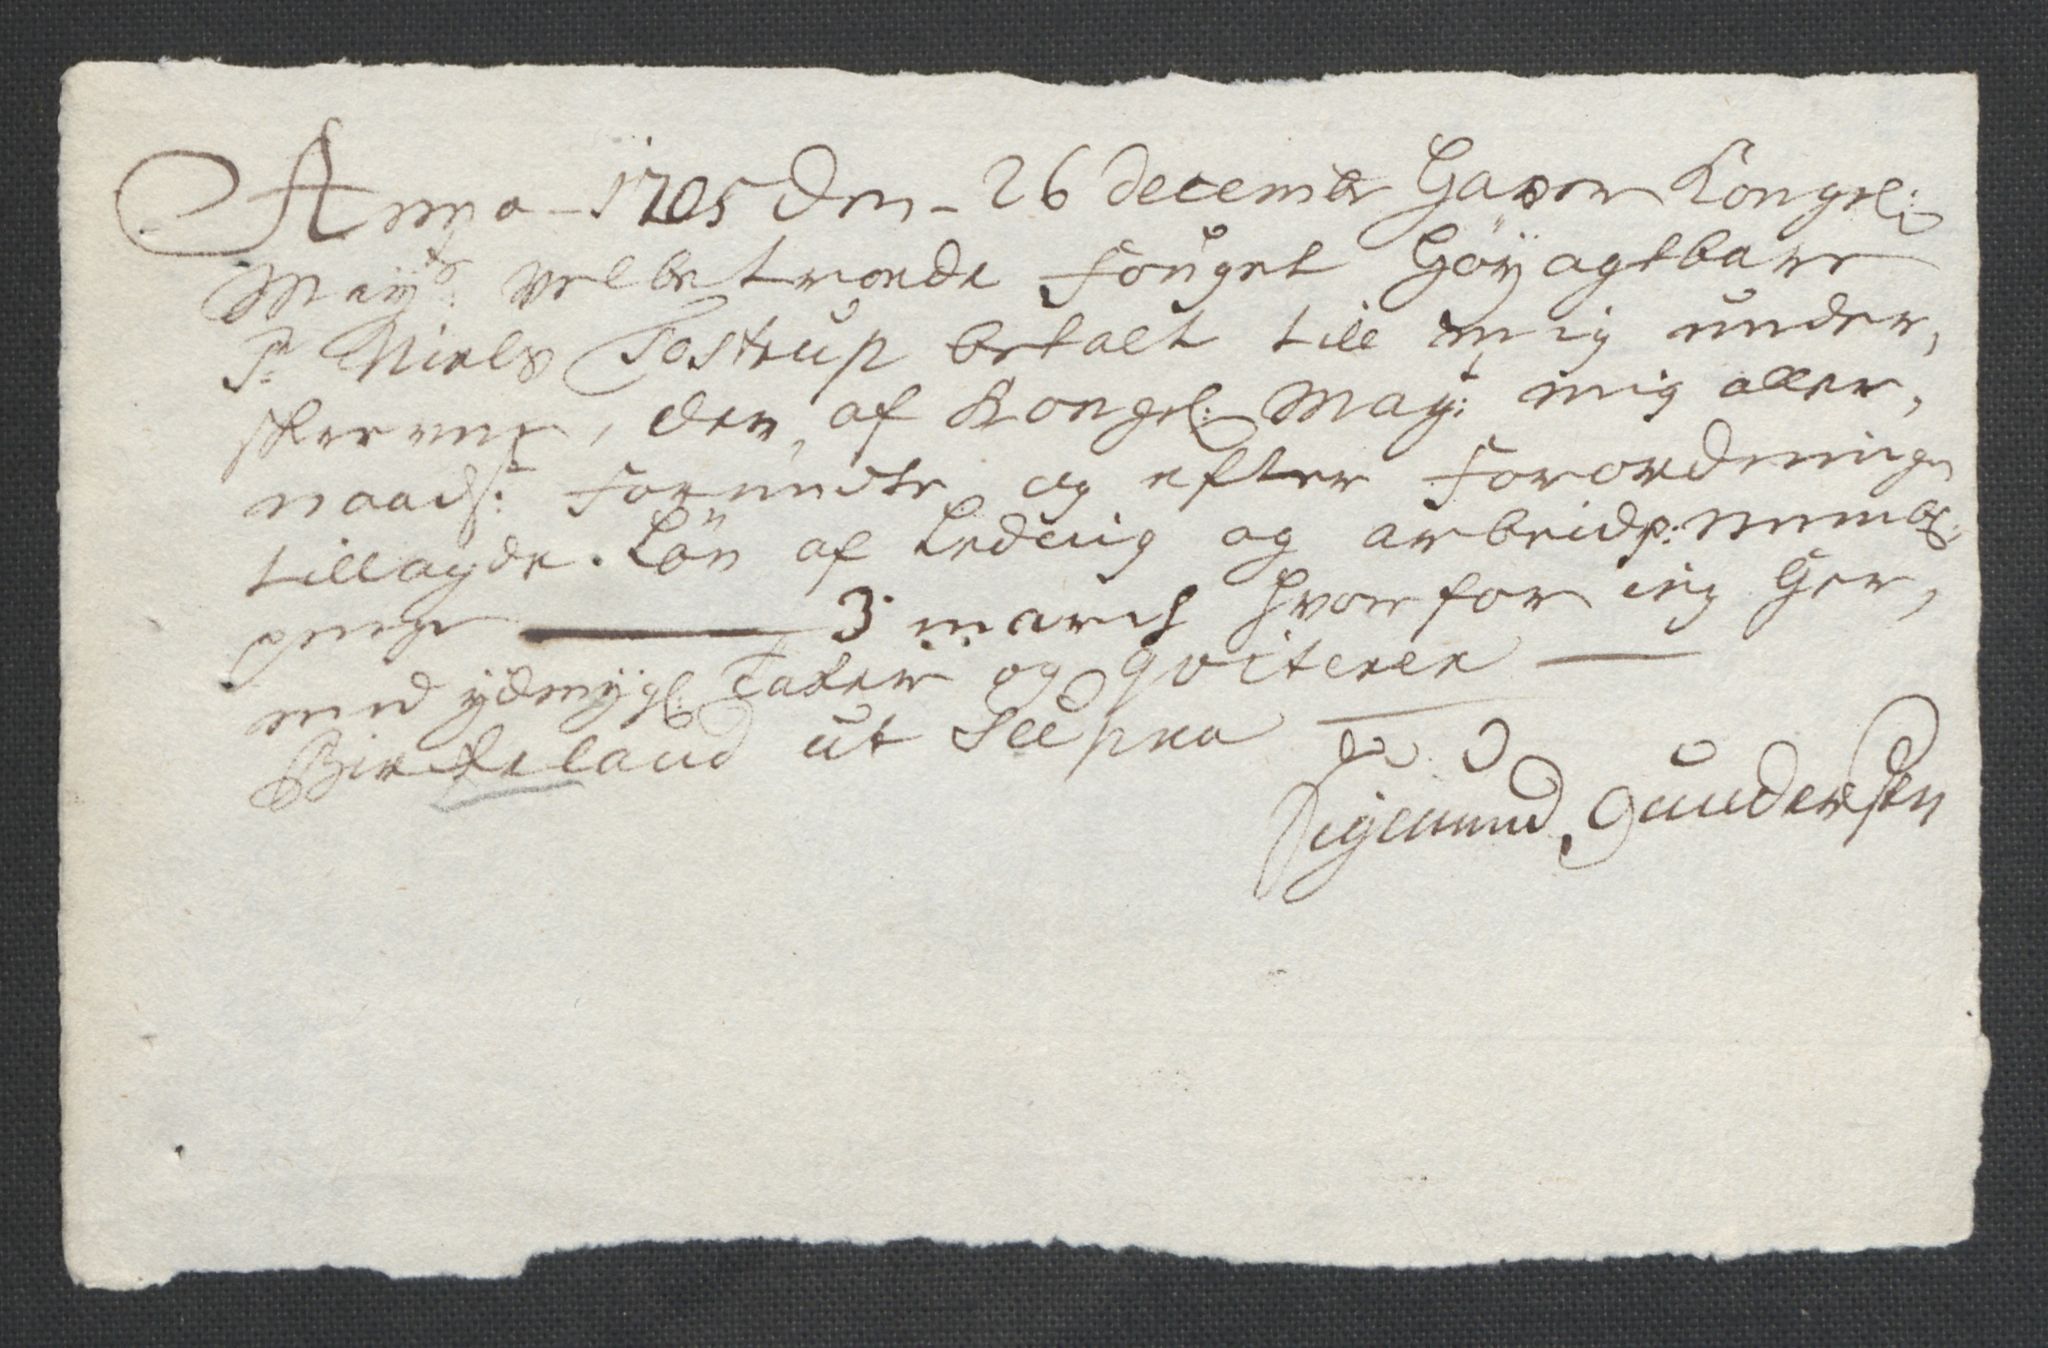 Anno - 1705 Den - 26 decembr Hafer Kongel:
Mayts: velbetroede Fouget Høyagtbare
Sr Niels Tostrup betalt till mig under,
skrevne, den af Kongel: Mayt: mig aller,
naadst: forundte og efter Forordninge
tillagde. Løn af Ledwig og arbeids:
penge ——— 3 march hvorfor ieg Her,
med ydmygl: Taker og qviterer —
Birkeland ut Supra —
Sigmund Gundersen